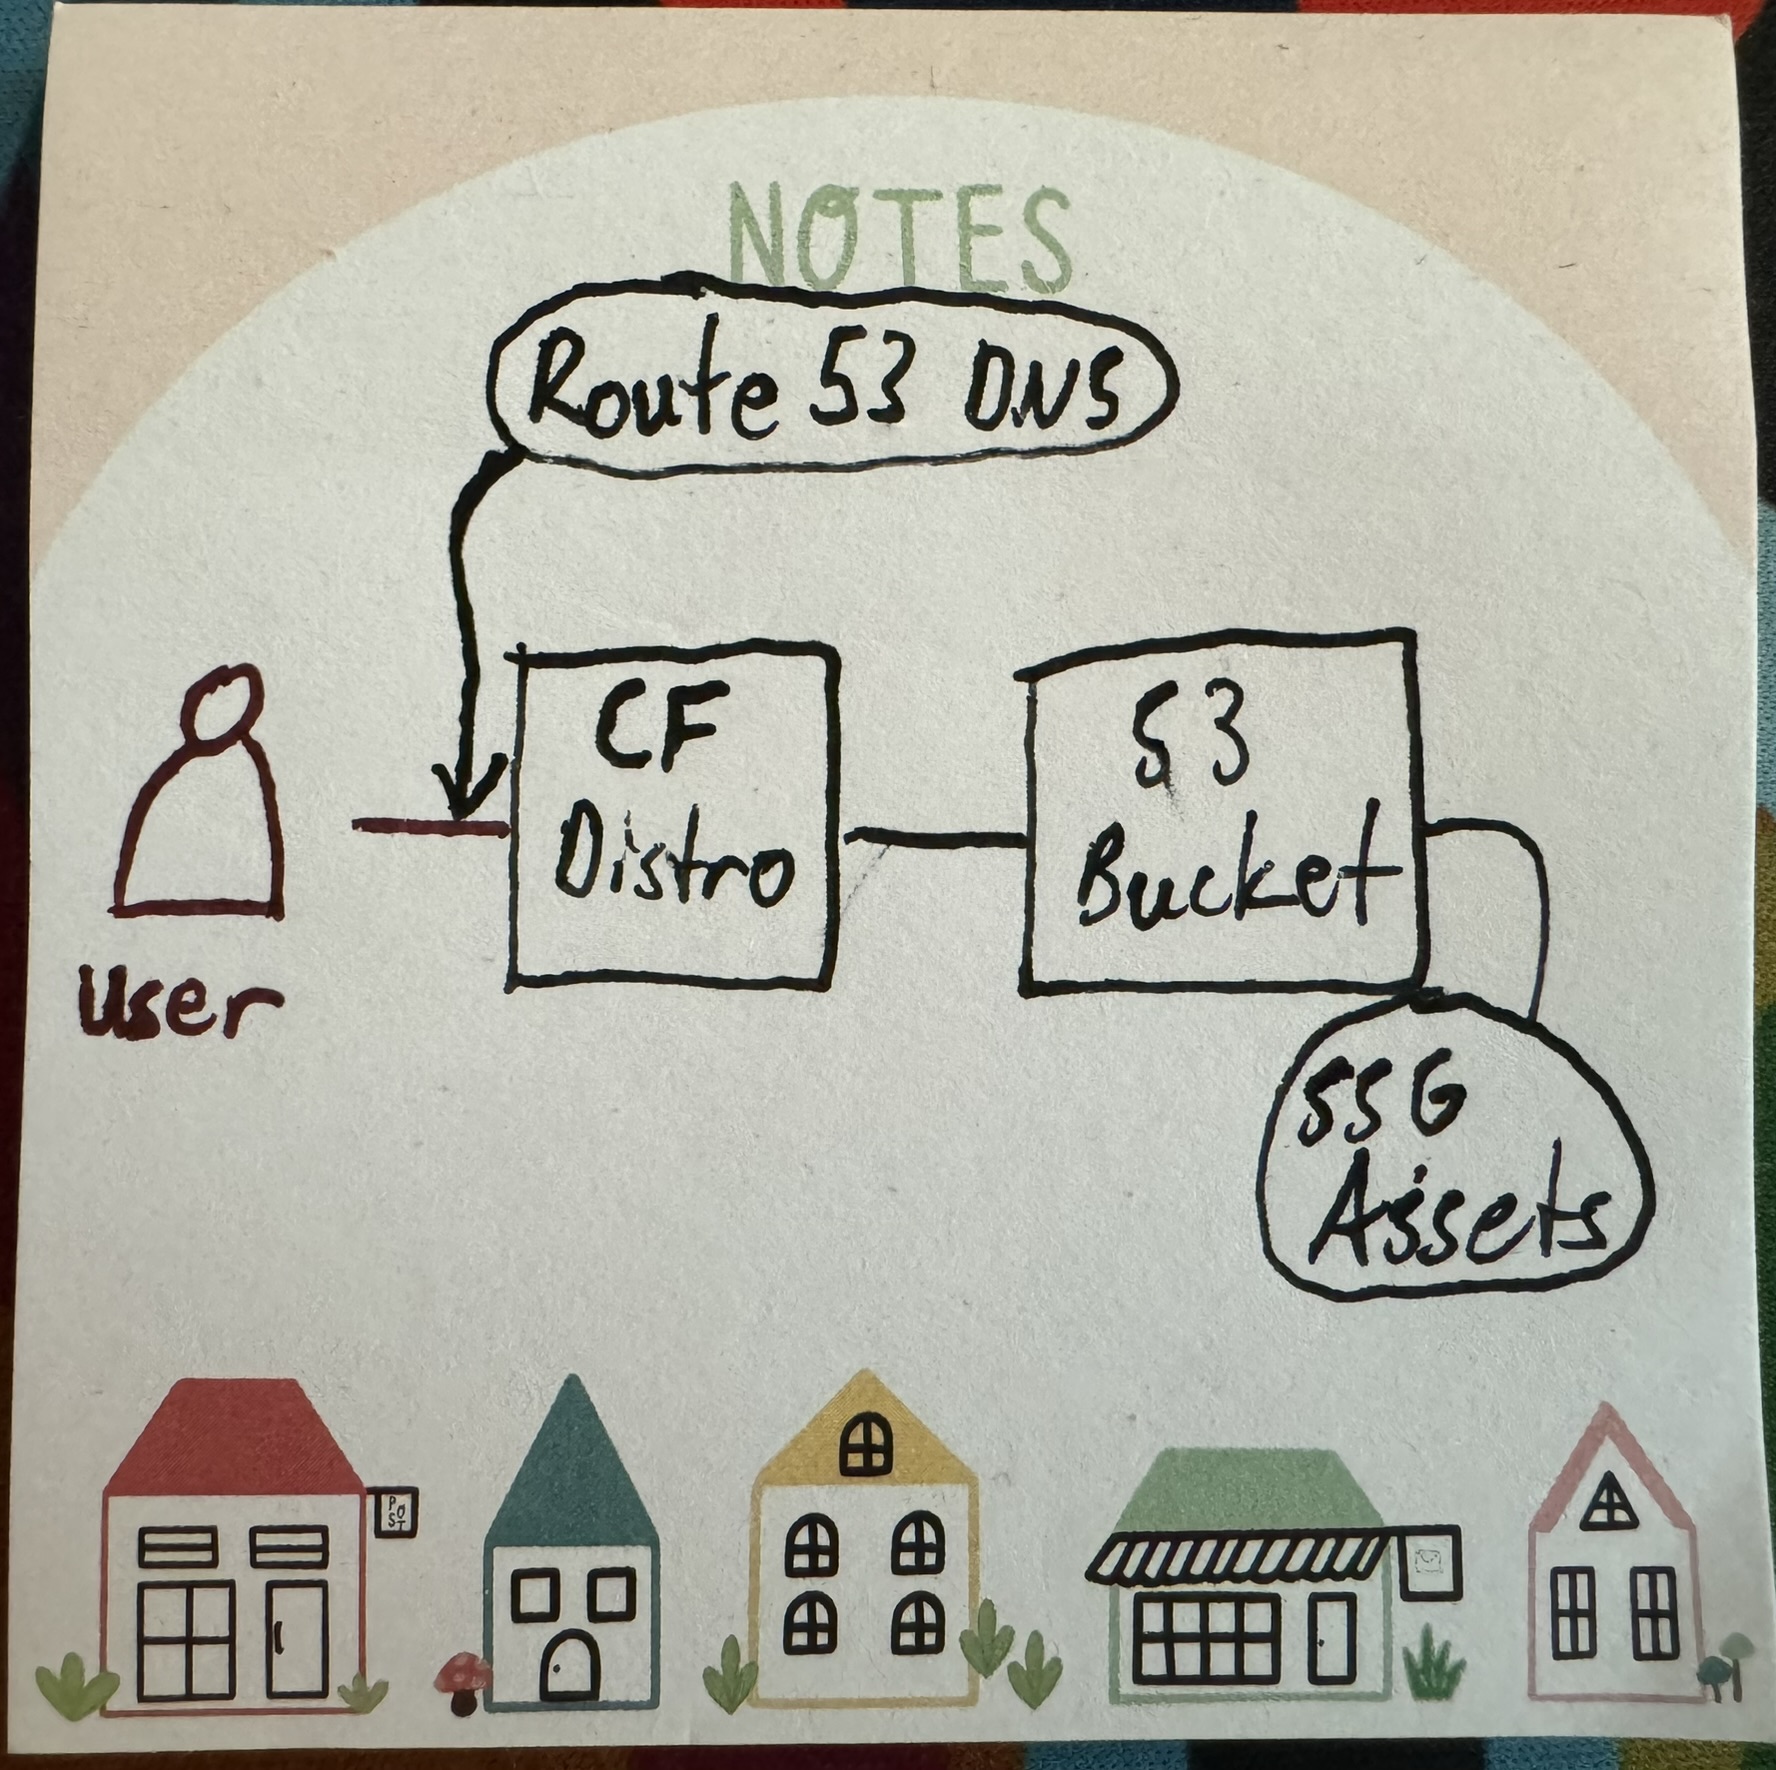 NOTES
Route 53 DNS
CF
Distro
S3
Bucket
User
SSG
Assets
POST